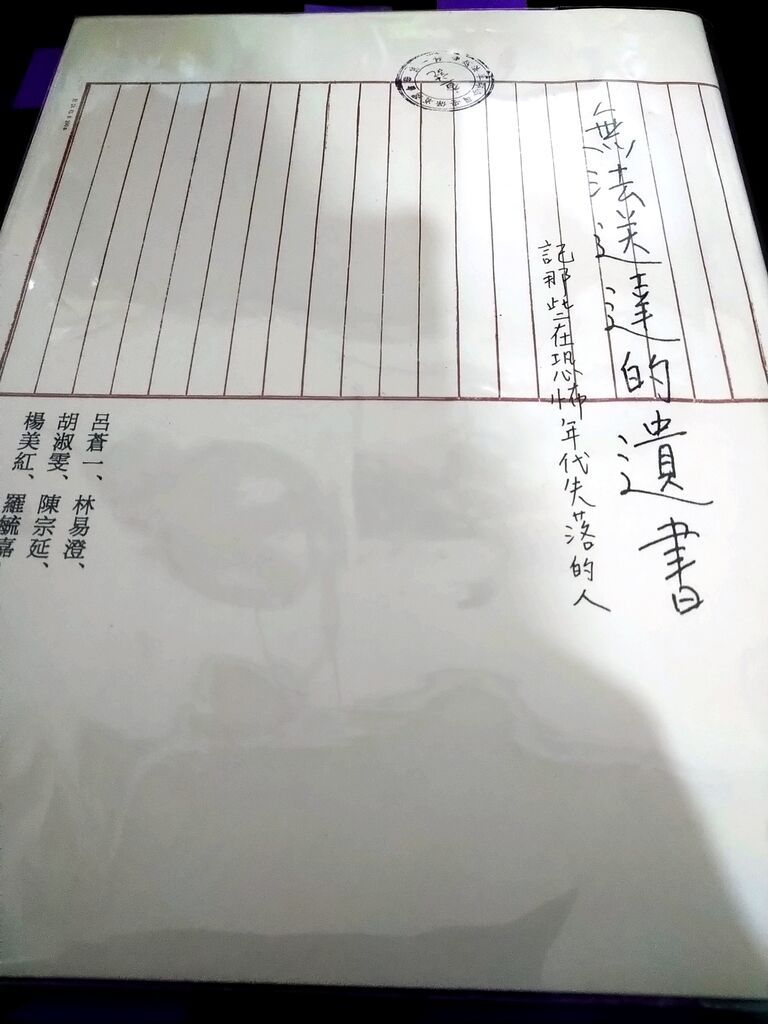 無法送達的遺書
記那些在恐怖年代失落的人
呂蒼一、林易澄、
胡淑雯、陳宗延、
楊美紅、羅毓嘉